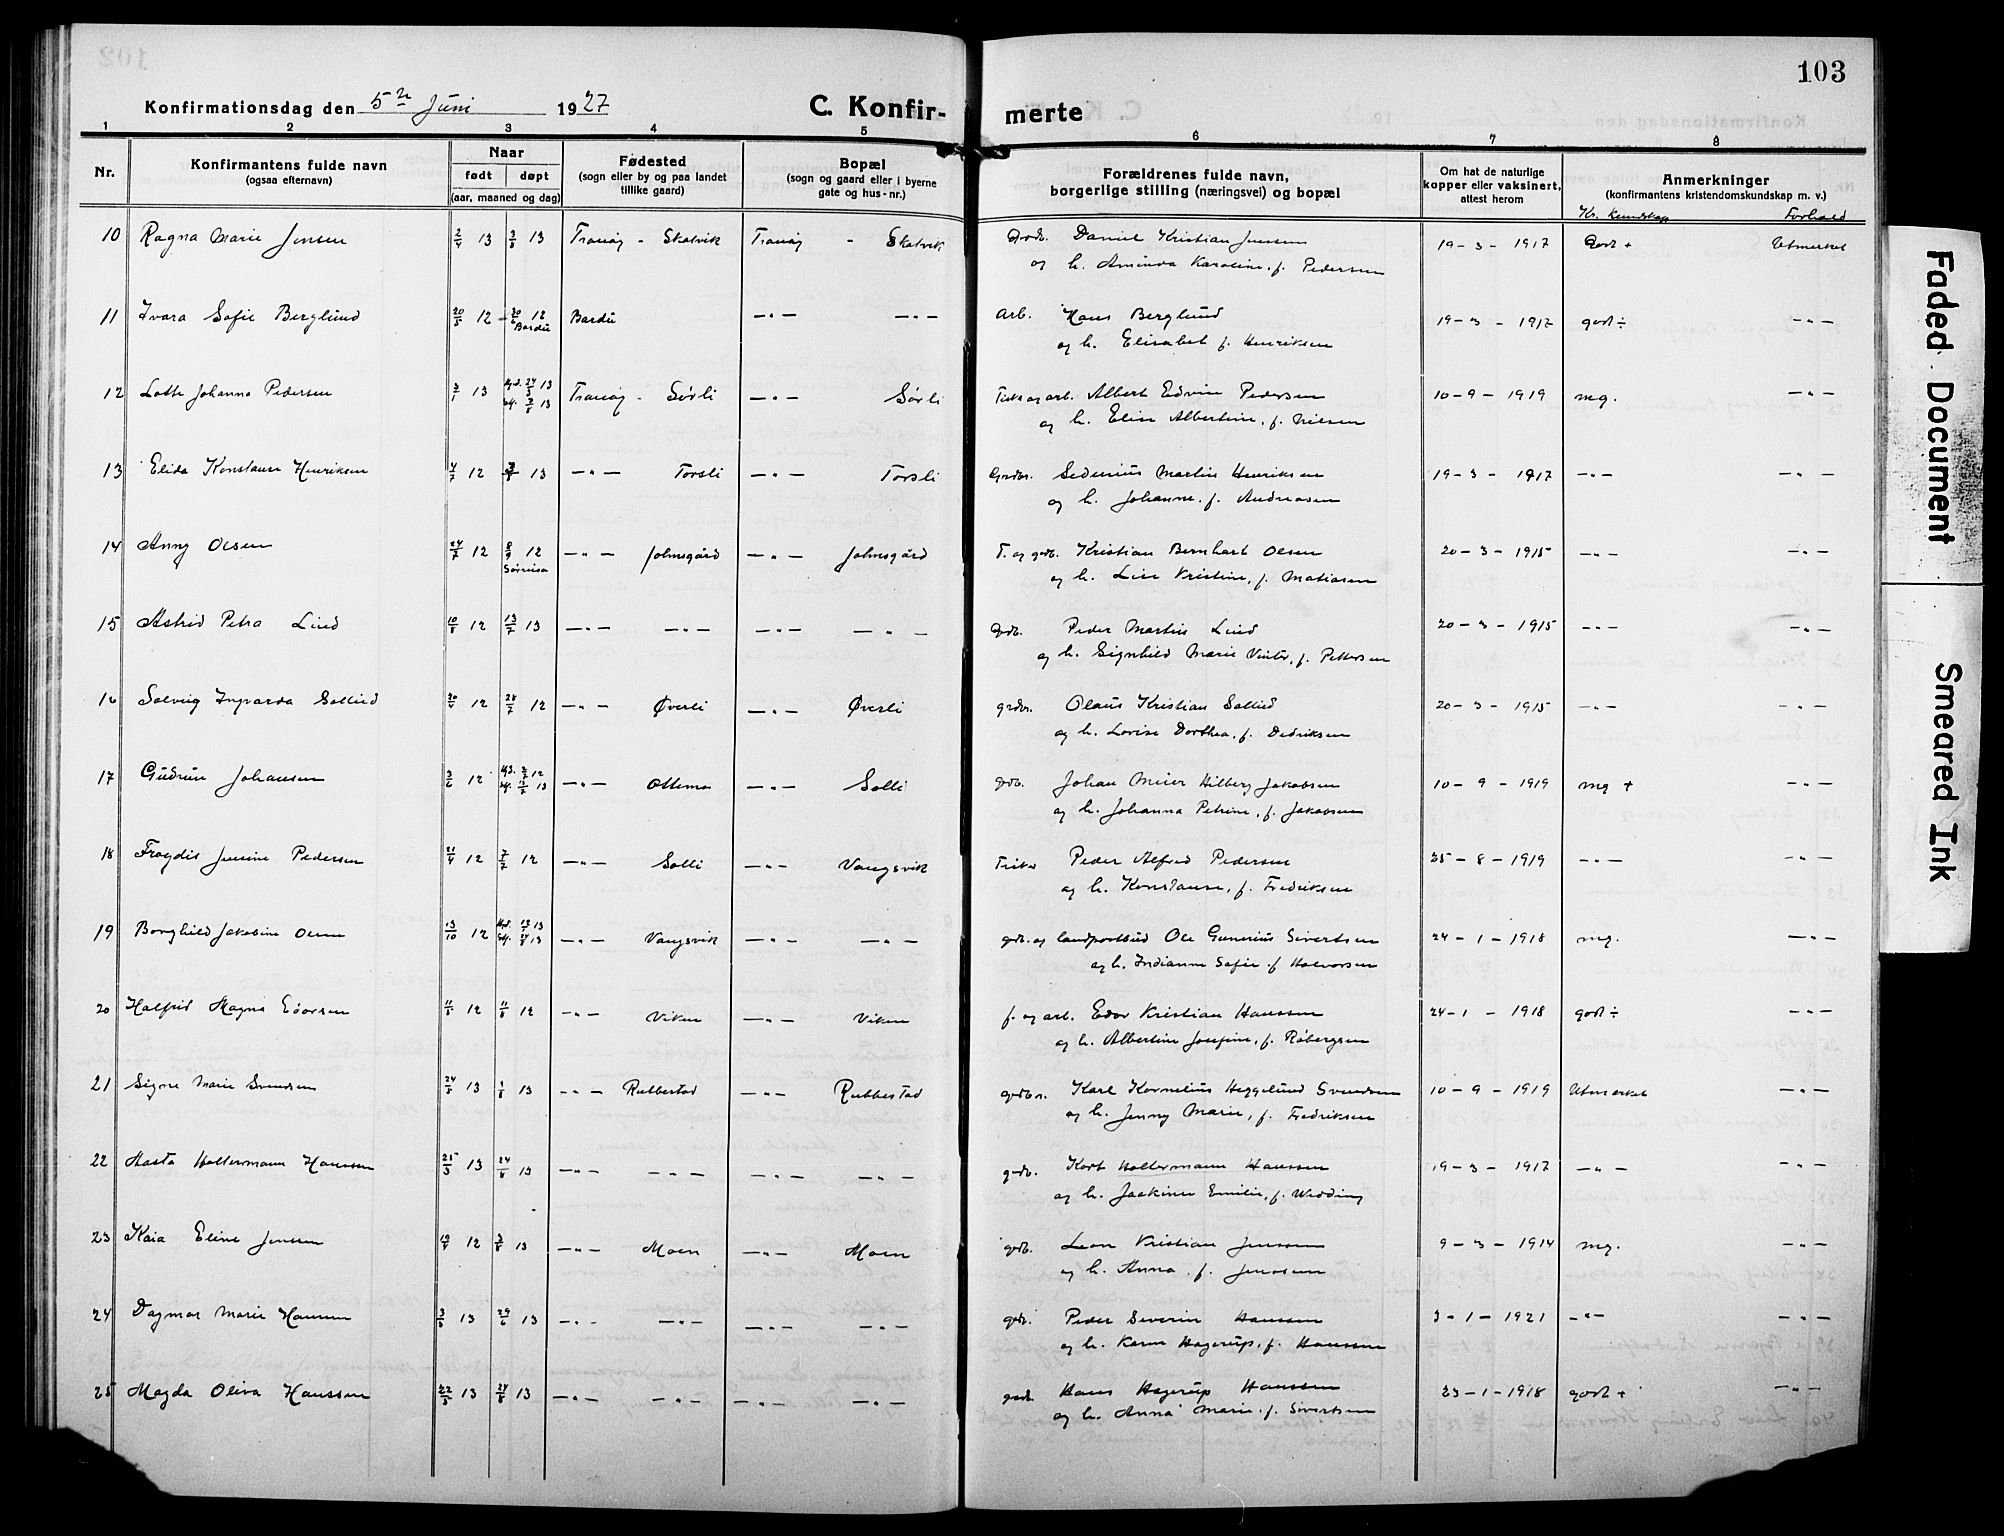 103
Konfirmationsdag den 5te Juni 1927
C. Konfirmerte
1 2 3 4 5 6 7 8
Nr.
Konfirmantens fulde navn
(ogsaa efternavn)
Naar
født døpt
(aar, maaned og dag)
Fødested
(sogn eller by og paa landet
tillike gaard)
Bopæl
(sogn og gaard eller i byerne
gate og hus-nr.)
Forældrenes fulde navn,
borgerlige stilling (næringsvei) og bopæl
Om hat de naturlige
kopper eller vaksinert,
attest herom
Anmerkninger
(konfirmantens kristendomskundskap m. v.)
Kr. kundskap Forhold
10 Ragna Marie Jensen 2/4 13 3/8 13 Tranøy - Skatvik Tranøy - Skatvik Gdb. Daniel Kristian Jenssen 19-3-1917 Godt + Utmerket
og h. Aminda Karoline, f. Pedersen
11 Ivara Sofie Berglund 20/5 12 30/6 12 Bardu Bardu -"- -"- Arb. Hans Berglund 19-3-1917 godt ÷ -"-
og h. Elisabet f. Henriksen
12 Lotte Johanna Pedersen 3/1 13 Hjd. 24/3 13 Tranøy - Sørli -"- Sørli Fisk og arb. Albert Edvin Pedersen 10-9-1919 mg. -"-
3/8 13 og h. Elise Albertine, f. Nilsen
13 Elida Konstanse Henriksen 4/7 12 3/8 13 -"- Torsli -"- Torsli Grdbr. Sedenius Martin Henriksen 19-3-1917 -"- -"-
og h. Johanne, f. Andreasen
14 Anny Olsen 24/7 12 8/9 12 Sørreisa -"- Johnsgård -"- Johnsgård F. og gdb. Kristian Bernhart Olsen 20-3-1915 -"- -"-
og h. Lise Kristine, f. Matiasen
15 Astrid Petra Lind 10/8 12 13/7 13 -"- -"- -"- -"- Gdb. Peder Martin Lind 20-3-1915 -"- -"-
og h. Signhild Marie Vinter, f. Pettersen
16 Solveig Ingvarda Sollid 30/4 12 28/7 12 -"- Øverli -"- Øverli grdbr. Olaus Kristian Sollied 20-3-1915 -"- -"-
og h. Lovise Dorthea, f. Dedriksen
17 Gudrun Johansen 3/6 12 Hjd. 7/7 12 -"- Ottemo -"- Solli gdb. Johan Meier Hilberg Jakobsen 10-9-1919 mg + -"-
13/7 13 og h. Johanna Petrine, f. Jakobsen
18 Frøydis Jensine Pedersen 21/4 12 7/7 12 -"- Solli -"- Vangsvik Fisker Peder Alfred Pedersen 25-8-1919 -"- -"-
og h. Konstanse, f. Fredriksen
19 Borghild Jakobine Olsen 13/10 12 -"- Vangsvik -"- -"- gdb. og landpostbud Ole Gunerius Sivertsen 24-1-1918 mg. -"-
og h. Indianne Sofie f. Halvorsen
20 Halfrid Magna Edorsen 11/5 12 11/8 12 -"- Viken -"- Viken f. og arb. Edor Kristian Hanssen 24-1-1918 godt ÷ -"-
og h. Albertine Josefine, f. Røbergsen
21 Signe Marie Svendsen 24/5 13 1/8 13 -"- Rubbestad -"- Rubbestad gdbr. Karl Kornelius Heggelund Svendsen 10-9-1919 Utmerket -"-
og h. Jenny Marie, f. Fredriksen
22 Aasta Holtermann Hanssen 25/3 13 24/8 13 -"- -"- -"- -"- gdb. Kort Holtermann Hanssen 19-3-1917 -"- -"-
og h. Jaakine Emilie, f. Wedding
23 Kaia Eline Jenssen 19/9 12 3/8 13 -"- Moen -"- Moen gdb. Leon Kristian Jenssen 9-3-1914 mg. -"-
og h. Anna, f. Jenssen
24 Dagmar Marie Hansen 3/3 13 29/6 13 -"- -"- -"- -"- gdb. Peder Severin Hanssen 3-1-1921 -"- -"-
og h. Karen Hagerup, f. Hanssen
25 Magda Oliva Hanssen 22/5 13 24/8 13 -"- -"- -"- -"- gdb. Hans Hagerup Hanssen 23-1-1918 godt + -"-
og h. Anna Marie f. Sivertsen
Faded Document
Smeared Ink